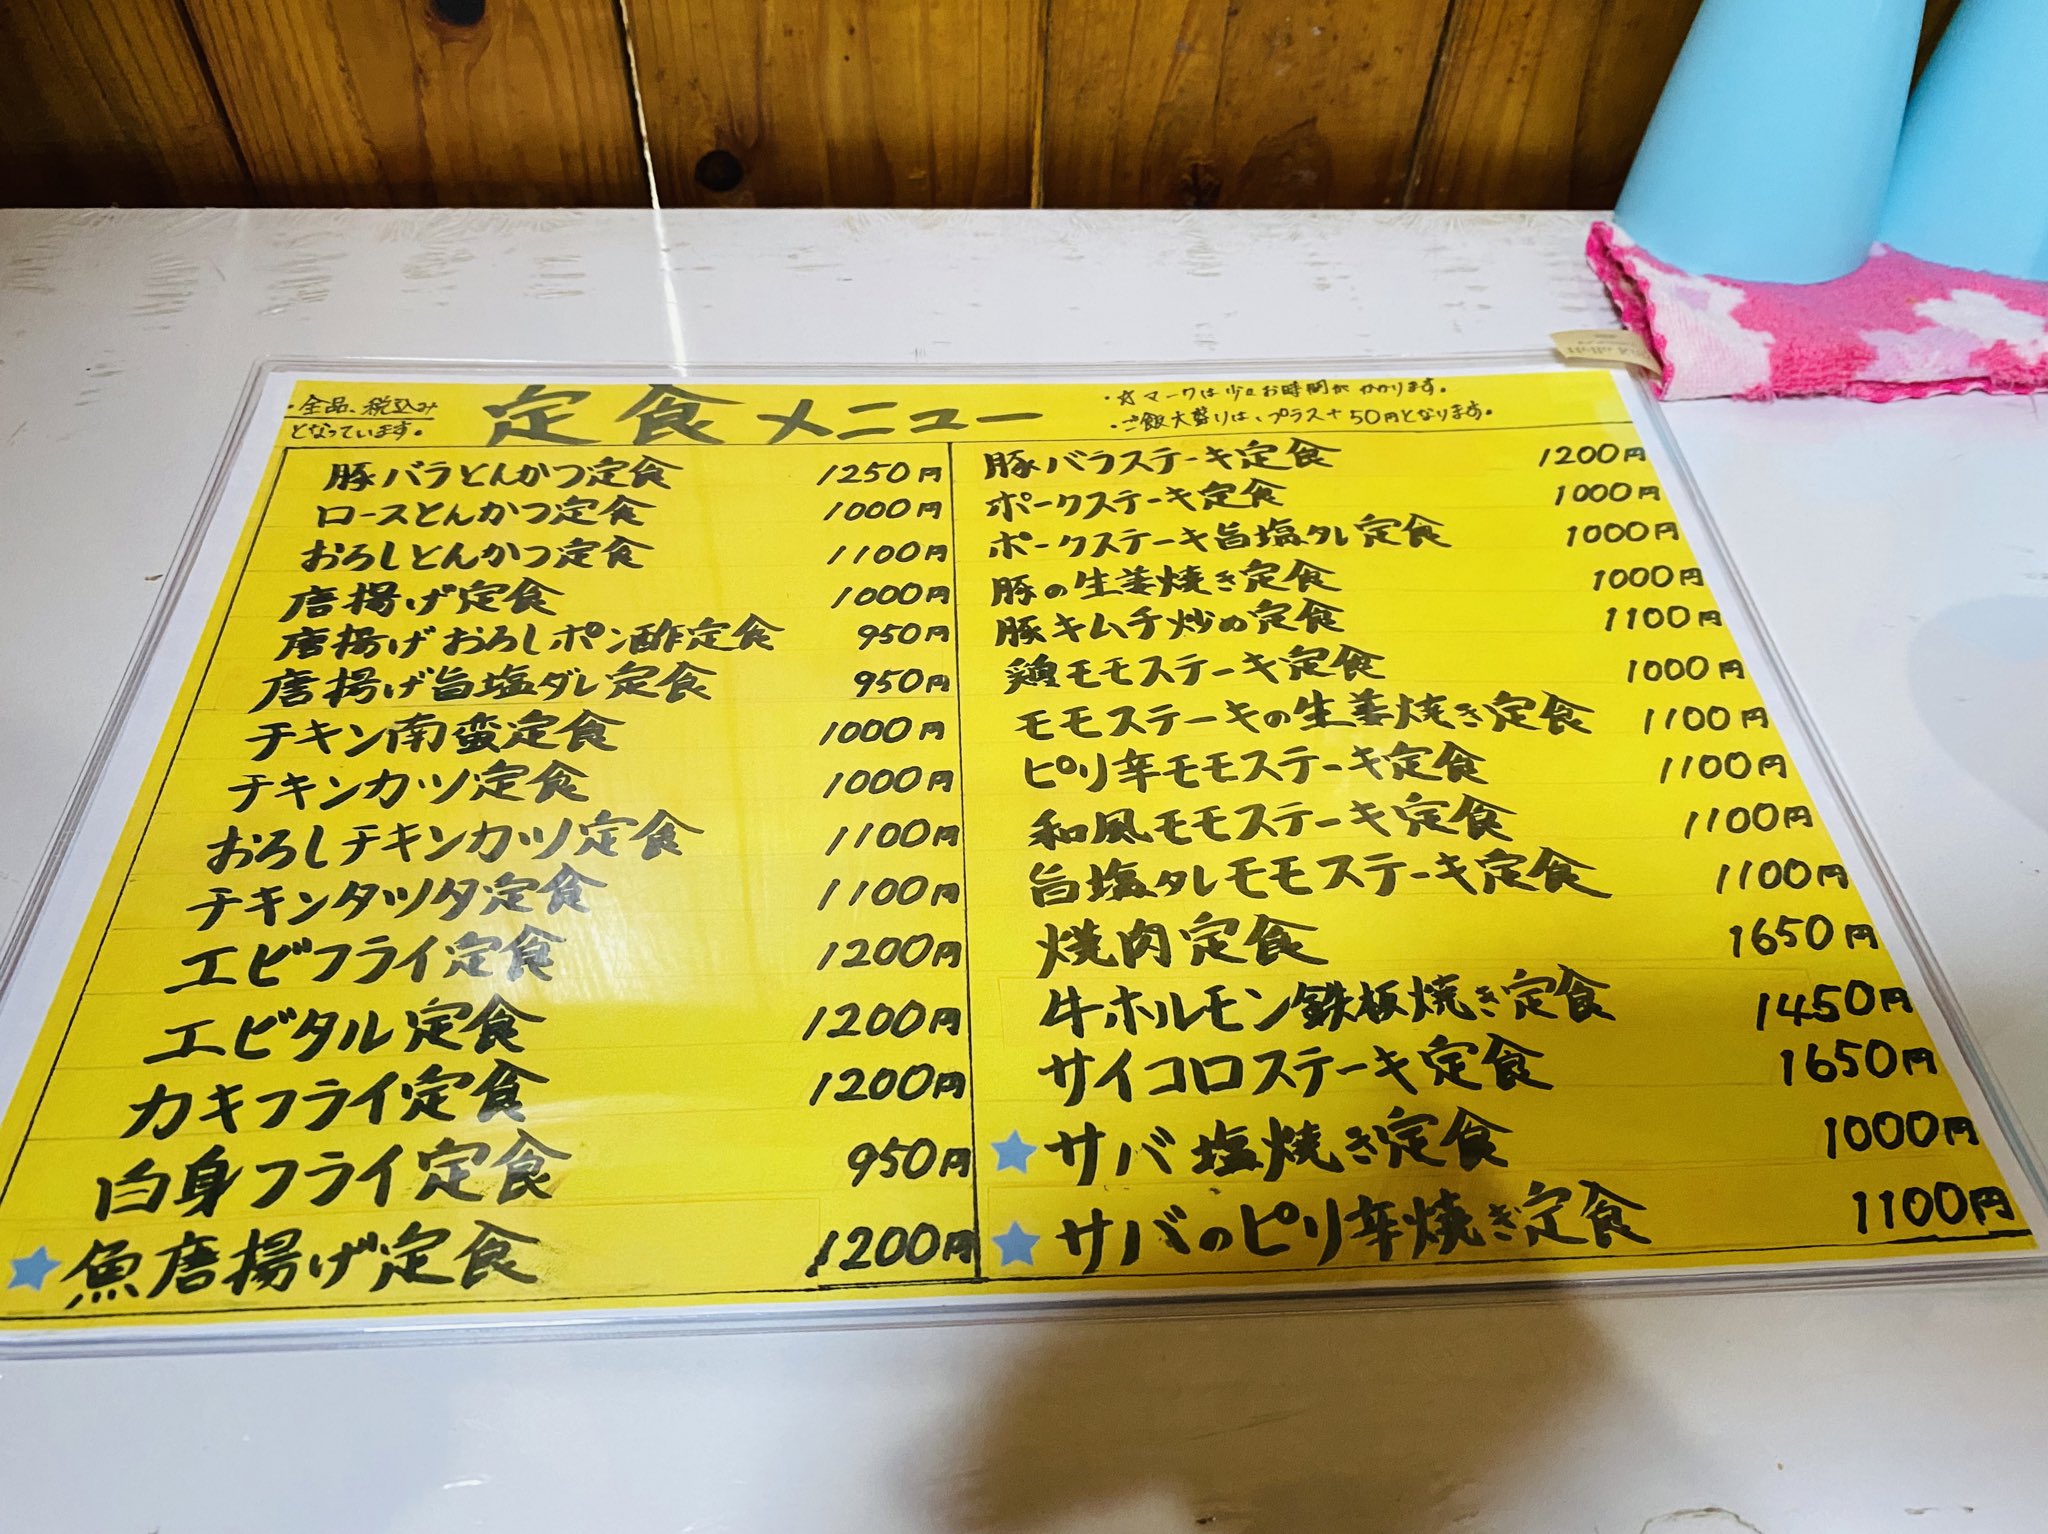 ・全品、税込み
となっています。
定食メニュー
・☆マークは少々お時間がかかります。
・ご飯大盛りは、プラス+50円となります。
豚バラとんかつ定食 1250円
ロースとんかつ定食 1000円
おろしとんかつ定食 1100円
唐揚げ定食 1000円
唐揚げおろしポン酢定食 950円
唐揚げ旨塩ダレ定食 950円
チキン南蛮定食 1000円
チキンカツ定食 1000円
おろしチキンカツ定食 1100円
チキンタツタ定食 1100円
エビフライ定食 1200円
エビタル定食 1200円
カキフライ定食 1200円
白身フライ定食 950円
★魚唐揚げ定食 1200円
豚バラステーキ定食 1200円
ポークステーキ定食 1000円
ポークステーキ旨塩タレ定食 1000円
豚の生姜焼き定食 1000円
豚キムチ炒め定食 1100円
鶏モモステーキ定食 1000円
モモステーキの生姜焼き定食 1100円
ピリ辛モモステーキ定食 1100円
和風モモステーキ定食 1100円
旨塩タレモモステーキ定食 1100円
焼肉定食 1650円
牛ホルモン鉄板焼き定食 1450円
サイコロステーキ定食 1650円
★サバ塩焼き定食 1000円
★サバのピリ辛焼き定食 1100円